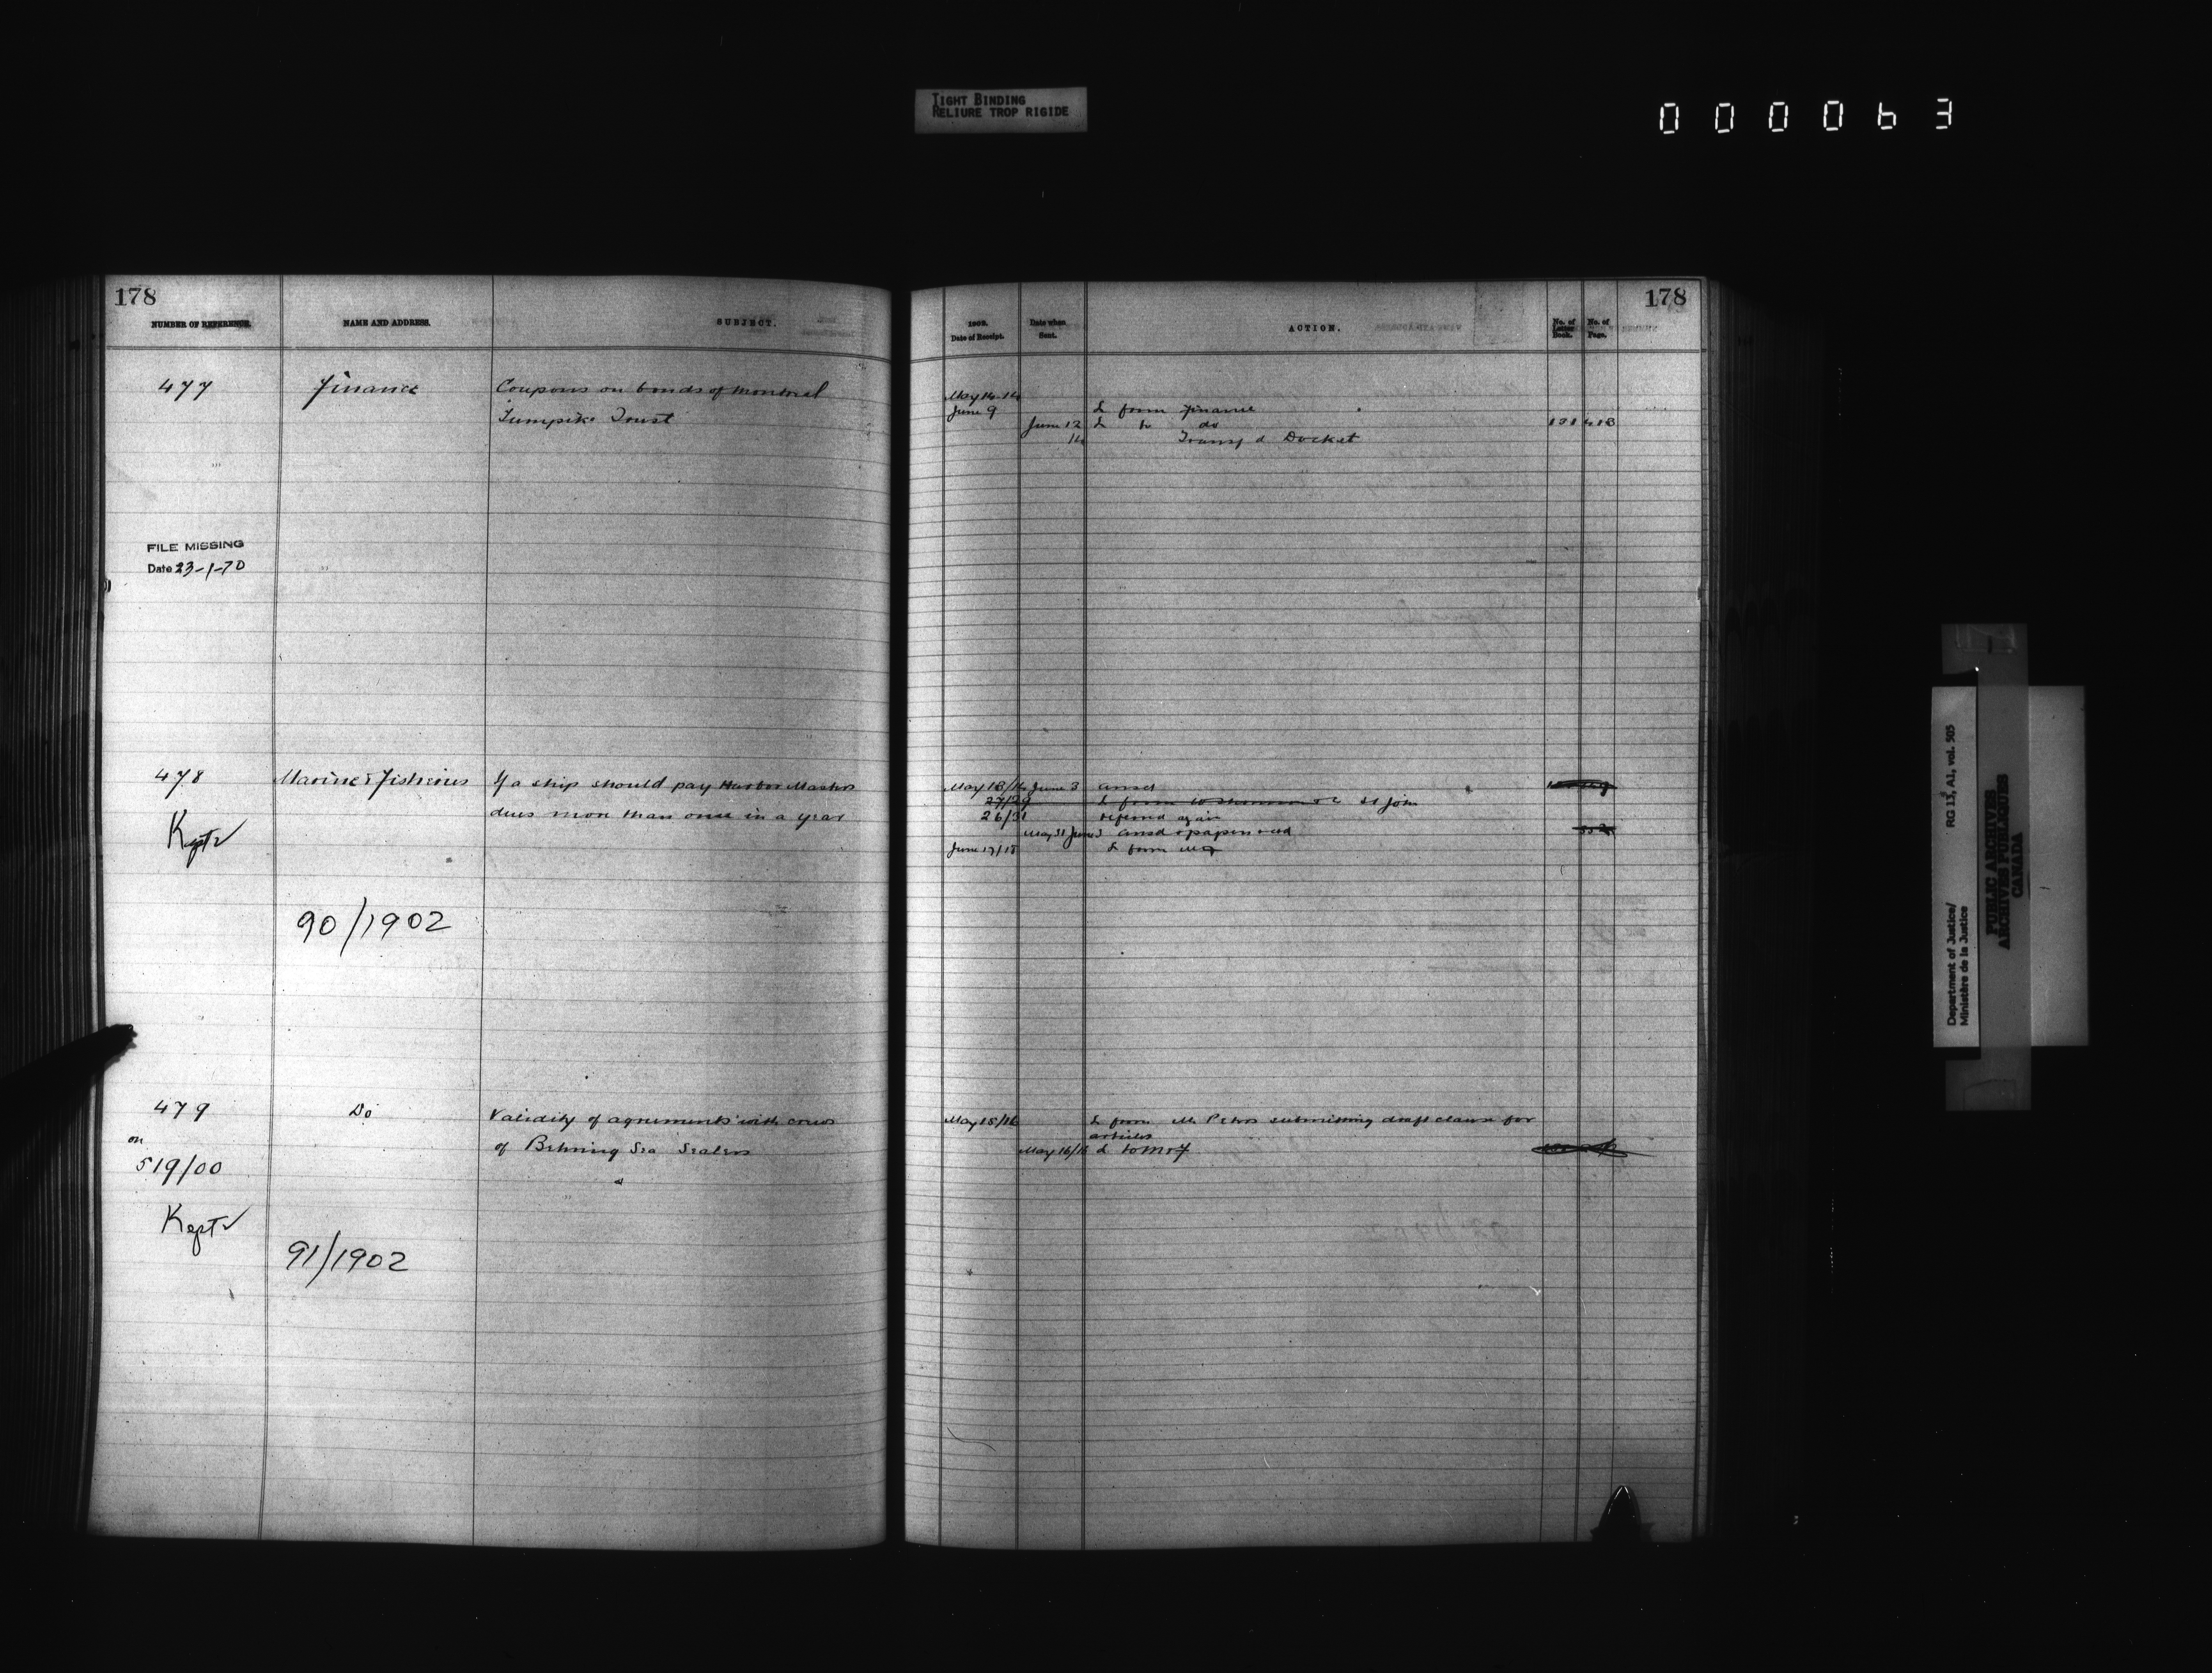 TIGHT BINDING
RELIURE TROP RIGIDE
000063
178
NUMBER OF REFERENCE.
NAME AND ADDRESS.
SUBJECT.
477
Finance
Coupons on bonds of Montreal
Turnpike Trust
FILE MISSING
Date 23-1-70
478
Marine & Fisheries
If a ship should pay Harbor Masters
dues more than once in a year
Kept
90/1902
479
Do
Validity of agreements with crews
of Behring Sea Sealers
on
519/00
Kept
91/1902
178
1902.
Date of Receipt.
Date when
Sent.
ACTION.
No. of
Letter
Book.
No. of
Page.
May 14
June 9
L from Finance
June 12
L to do
Transf d Docket
May 13/14 June 3 ansd
27/29 L from St John
26/31 referred again
May 31 June 3 ansd & papers retd
June 17/18 L from
May 15/16 L from Mr Peters submitting draft clause for
articles
May 16/16 L to M & F
Department of Justice/
Ministère de la Justice
RG 13, A1, vol. 505
PUBLIC ARCHIVES
ARCHIVES PUBLIQUES
CANADA